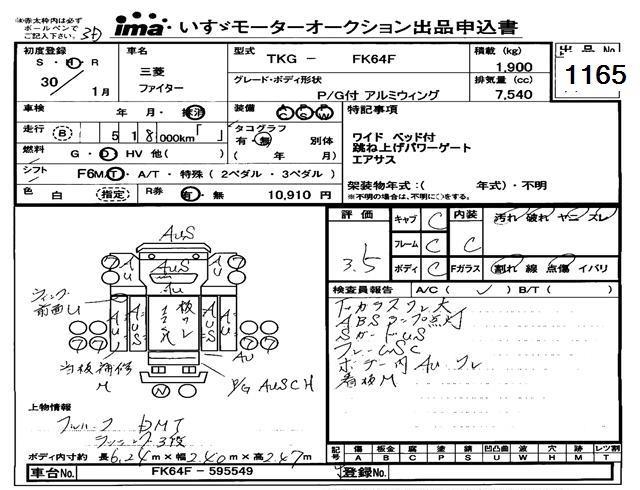 (※)赤太枠内は必ず
ボールペンで
ご記入下さい。
ima いすゞモーターオークション出品申込書
初度登録
S・H・R
30/1月
車名
三菱
ファイター
型式
TKG － FK64F
積載 (kg)
1,900
グレード・ボディ形状
P/G付 アルミウィング
排気量 (cc)
7,540
出品 No
1165
車検 年・月・抹消
装備 AC PS PW
特記事項
ワイド ベッド付
跳ね上げパワーゲート
エアサス
走行 B 518,000km「 」
タコグラフ
有・無 別体
( 年 月)
燃料 G・D HV 他( )
シフト F6MT・A/T・特殊(2ペダル・3ペダル)
架装物年式：( 年式)・不明
※不明の場合は、不明に○をする。
色 白 (指定)
R券 有・無 10,910 円
評価
3.5
キャブ C
フレーム C
ボディ C
内装 C
汚れ 破れ ヤニ スレ
Fガラス 割れ 線 点傷 イバリ
検査員報告 A/C ( ✓ ) B/T ( )
ABSランプ点灯
看板M
AuS
AuS
Au
Au
P/G AuSCH
N
上物情報
フルハーフ DMT
ラッシング3段
ボディ内寸約 長6.24m×幅2.40m×高2.47m
記号 傷 板金 腐 塗 錆 凹凸曲 波 穴 跡 モト レツ割
A B C P S U W H M T
車台No. FK64F－595549
登録No.